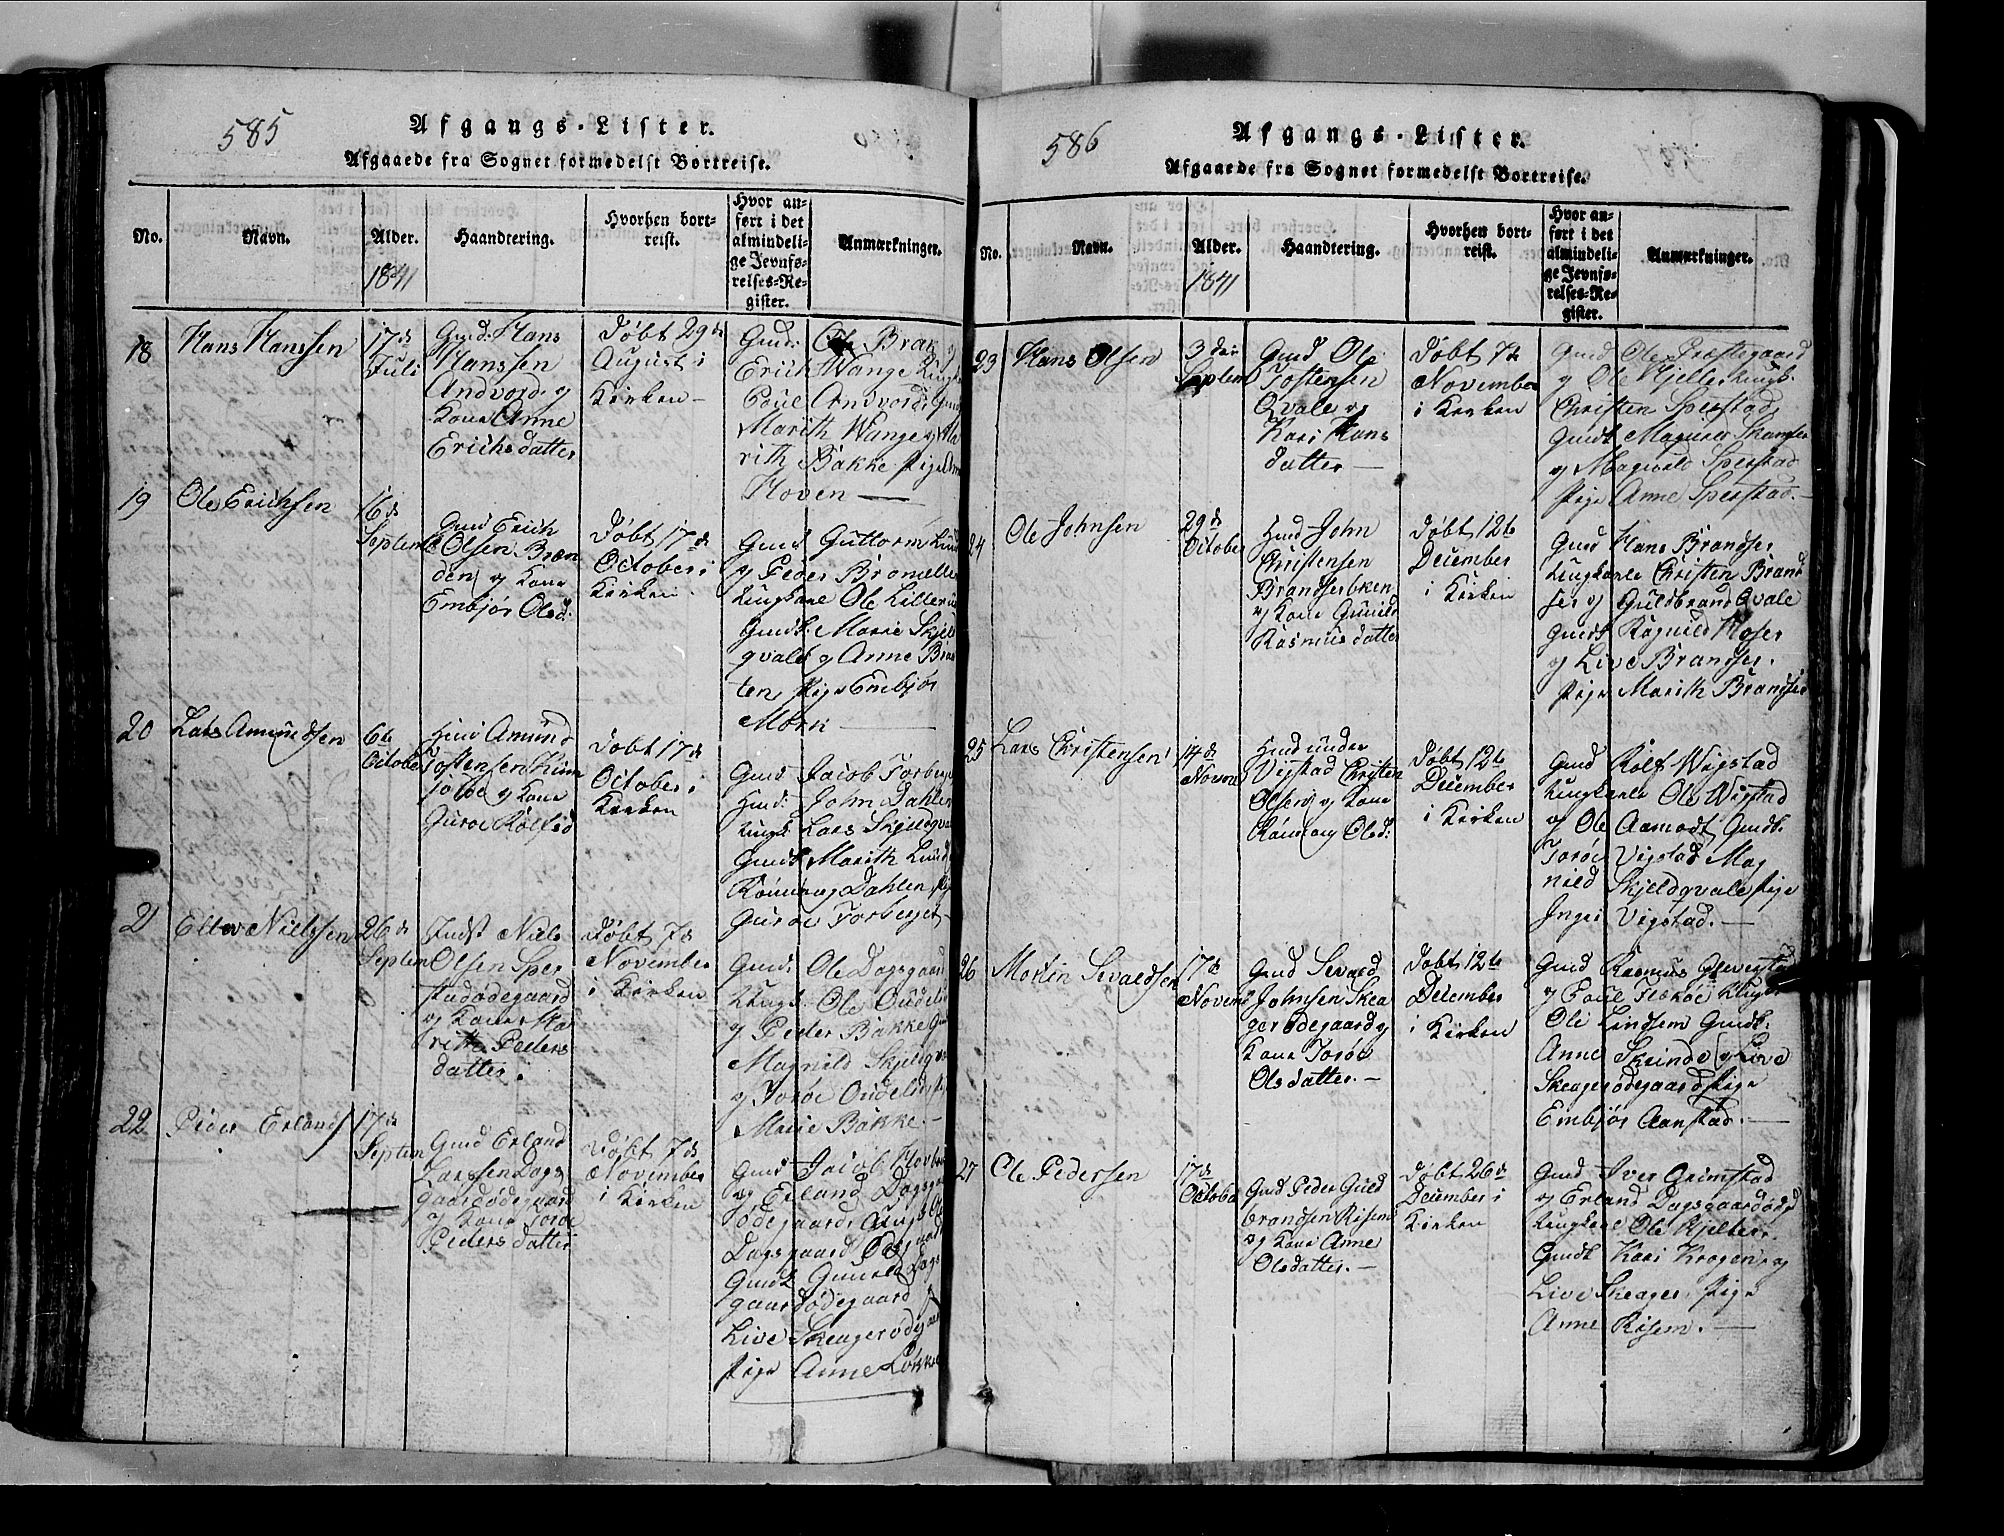 585
Afgangs-Lister.
Afgaaede fra Sognet formedelst Bortreise.
No.
Navn.
Alder.
1841
Haandtering.
Hvorhen bort-
reist.
Hvor an-
ført i det
almindeli-
ge Jevnfø-
relses-Re-
gister.
Anmærkninger.
18
Hans Hanssen
17de
Juli
Gmd: Hans
Hanssen
Andvord og
Kone Anne
Erichsdatter
Døbt 29de
August i
Kirken
Gmd: Ole Brak
Erich Wange
Poul Andvord
Marith Wange og Ma
rith Bakke Pige
Hoven
19
Ole Erichsen
16de
Septem
Gmd Erich
Olsen Bran
den og Kone
Embjør Olsd:
Døbt 17de
October i
Kirken
Gmd Guttorm Lund
og Peder
Ungkarle Ole Lillerud
Gmdk: Marie Skjeld
qvale og Anne Bra
ten, Pige Embjør
Mork
20
Lars Amundsen
6te
October
Hmd Amund
Tostensen
og Kone
Guroe Rolfsd
Døbt 17de
October i
Kirken
Gmd: Jacob Forberg
Hmd: John Dahlen
Ungk Lars Skjeldqva
Gmdk Marith Lund
Rønnog Dahlen, Pig
Guroe Forberget
21
Ellev Nielssen
26de
Septem
Indst Niels
Olsen Sper
stadødegaard
og Kone Ma
rith Peders
datter.
Døbt 7de
November
i Kirken
Gmd: Ole Dagsgaard
Ungk: Ole
og Peder Bakke
Magnild Skjeldqva
og Toroe
Marie Bakke.
22
Peder Erlands
17de
Septem
Gmd Erland
Larssen Dags
gaardødegaard
og Kone Toroe
Pedersdatter
Døbt 7de
November
i Kirken
Gmd Jacob
og Erland Dagsga
ødegaard, Ungk Ole
Dagsgaard
Gmdk Gunild Dags
gaardødegaard
Live Skeagerødega
Pige Anne Løkken
586
Afgangs-Lister.
Afgaaede fra Sognet formedelst Bortreise.
No.
Navn.
Alder.
1841
Haandtering.
Hvorhen bort-
reist.
Hvor an-
ført i det
almindeli-
ge Jevnfø-
relses-Re-
gister.
Anmærkninger.
23
Hans Olsen
3die
Septem
Gmd Ole
Tostensen
Qvale og
Kari Hans
datter
Døbt 7de
November
i Kirken
Gmd Ole Præstegaard
og Ole Kjelle, Ungk.
Christen Sperstad,
Gmdk
og Magnild Sperstad
Pige Anne Sperstad.
24
Ole Johnsen
29de
October
Hmd John
Christensen
og Kone Gunild
Rasmusdatter
Døbt 12te
December
i Kirken
Gmd Hans Brandser
Ungkarle Christen Brand
ser og Guldbrand Qvale
Gmdk Ragnild Moser
og Live Brandser.
Pige Marith Brandser
25
Lars Christensen
14de
Novem
Hmd under
Vigstad Christen
Olsen og Kone
Rønnog Olsd:
Døbt 12te
December
i Kirken
Gmd Rolf Wigstad
Ungkarle Ole Wigstad
og Ole Aamodt, Gmdk.
Toroe Vigstad Mag
nild Skjeldqvale, Pige
Inger Vigstad.
26
Morten Sevaldsen
17de
Novem
Gmd Sevard
Johnsen Skea
gerødegaard og
Kone Toroe
Olsdatter.
Døbt 12te
December
i Kirken
Gmd Rasmus
og Poul Teskøe Ungk:
Ole Lindsem Gmdk.
Anne Skunde og Live
Skeagerødegaard, Pige
Embjør Aanstad.
27
Ole Pedersen
17de
October
Gmd Peder Guld
brandsen Risem
og Kone Anne
Olsdatter.
Døbt 26de
December i
Kirken
Gmd Iver Grimstad
og Erland Dagsgaardødeg
Ungkarl Ole
Gmdk Kari Krogen og
Live Skeager, Pige
Anne Risem.